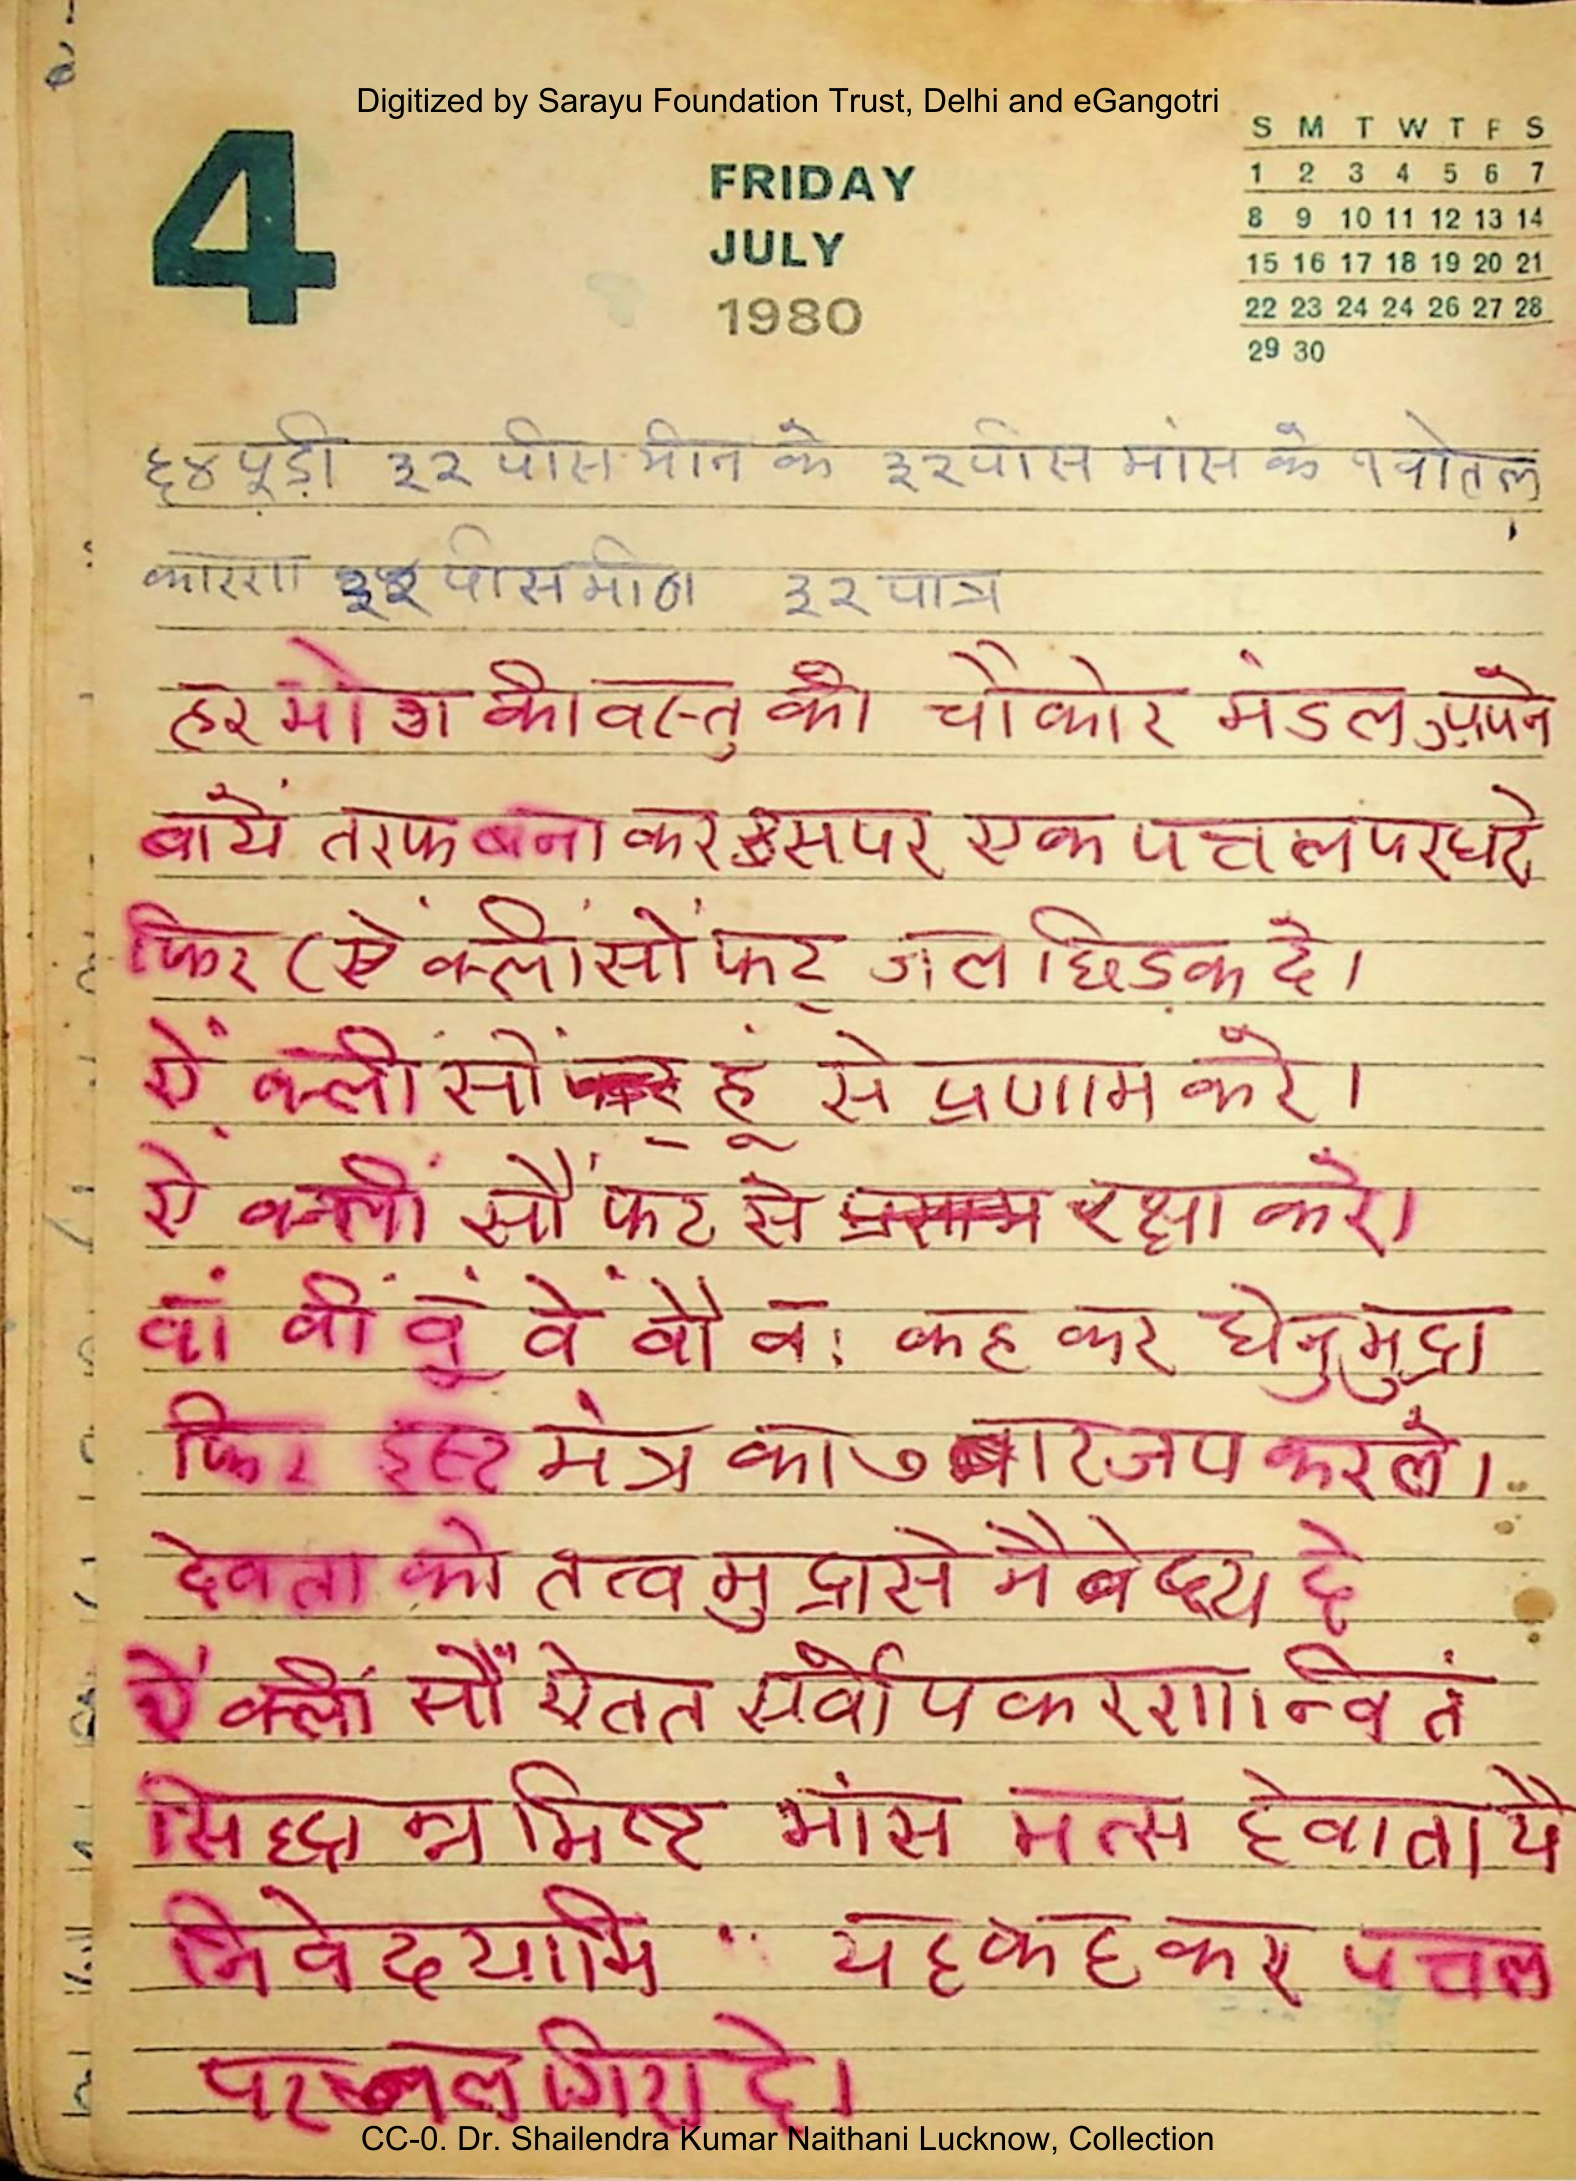 Digitized by Sarayu Foundation Trust, Delhi and eGangotri
4
FRIDAY
JULY
1980
S M T W T F S
1 2 3 4 5 6 7
8 9 10 11 12 13 14
15 16 17 18 19 20 21
22 23 24 24 26 27 28
29 30
६४ पूड़ी ३२ पीस मीन के ३२ पीस मांस के १ वोतल
कारण ३२ पीस मीठा ३२ पात्र
हर भोग की वस्तु को चौकोर मंडल अपने
बायें तरफ बना कर उस पर एक पत्तल पर धरे
फिर (ऐं क्लीं सों फट् जल छिड़क दे।
ऐं क्लीं सों हूं से प्रणाम करे।
ऐं क्लीं सौं फट से रक्षा करें।
वां वीं वूं वें वौं वः कह कर धेनु मुद्रा
फिर इस्ट मंत्र का ७ बार जप कर ले।
देवता को तत्व मुद्रा से नैबेद्य दे
ऐं क्लीं सौं ऐतत सर्वोपकरणान्वितं
सिद्धान्न मिष्ट मांस मत्स देवातायै
निवेदयामि " यह कह कर पत्तल
पर जल गिरा दे।
CC-0. Dr. Shailendra Kumar Naithani Lucknow, Collection